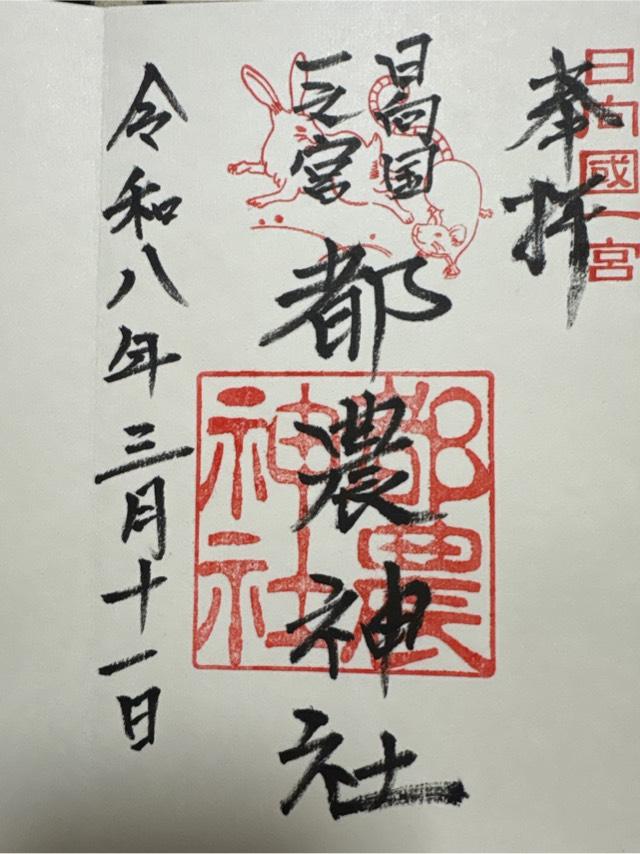 日向國一宮
奉拝
日向国
一之宮
都農神社
都農神社
令和八年三月十一日